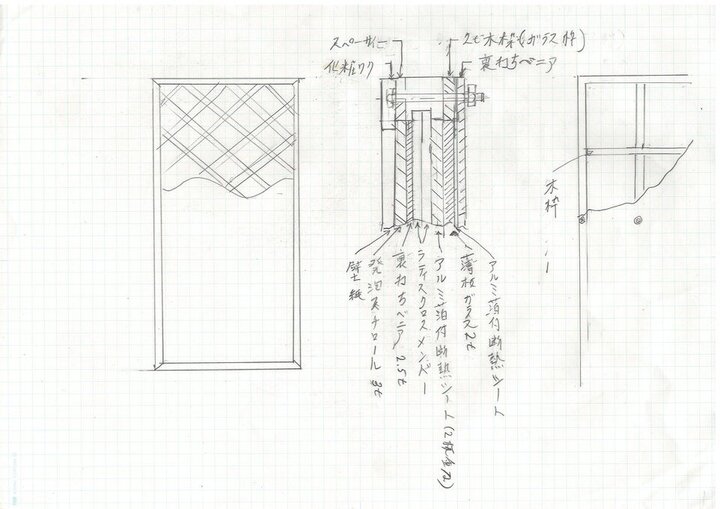 スペーサー
化粧ワク
2t 木枠(ガラス枠)
裏打ちベニア
木枠
壁紙
発泡スチロール 3t
裏打ちベニア 2.5t
ラティスクロスメンバー
アルミ箔付断熱シート(2枚重ね)
薄板ガラス 2t
アルミ箔付断熱シート